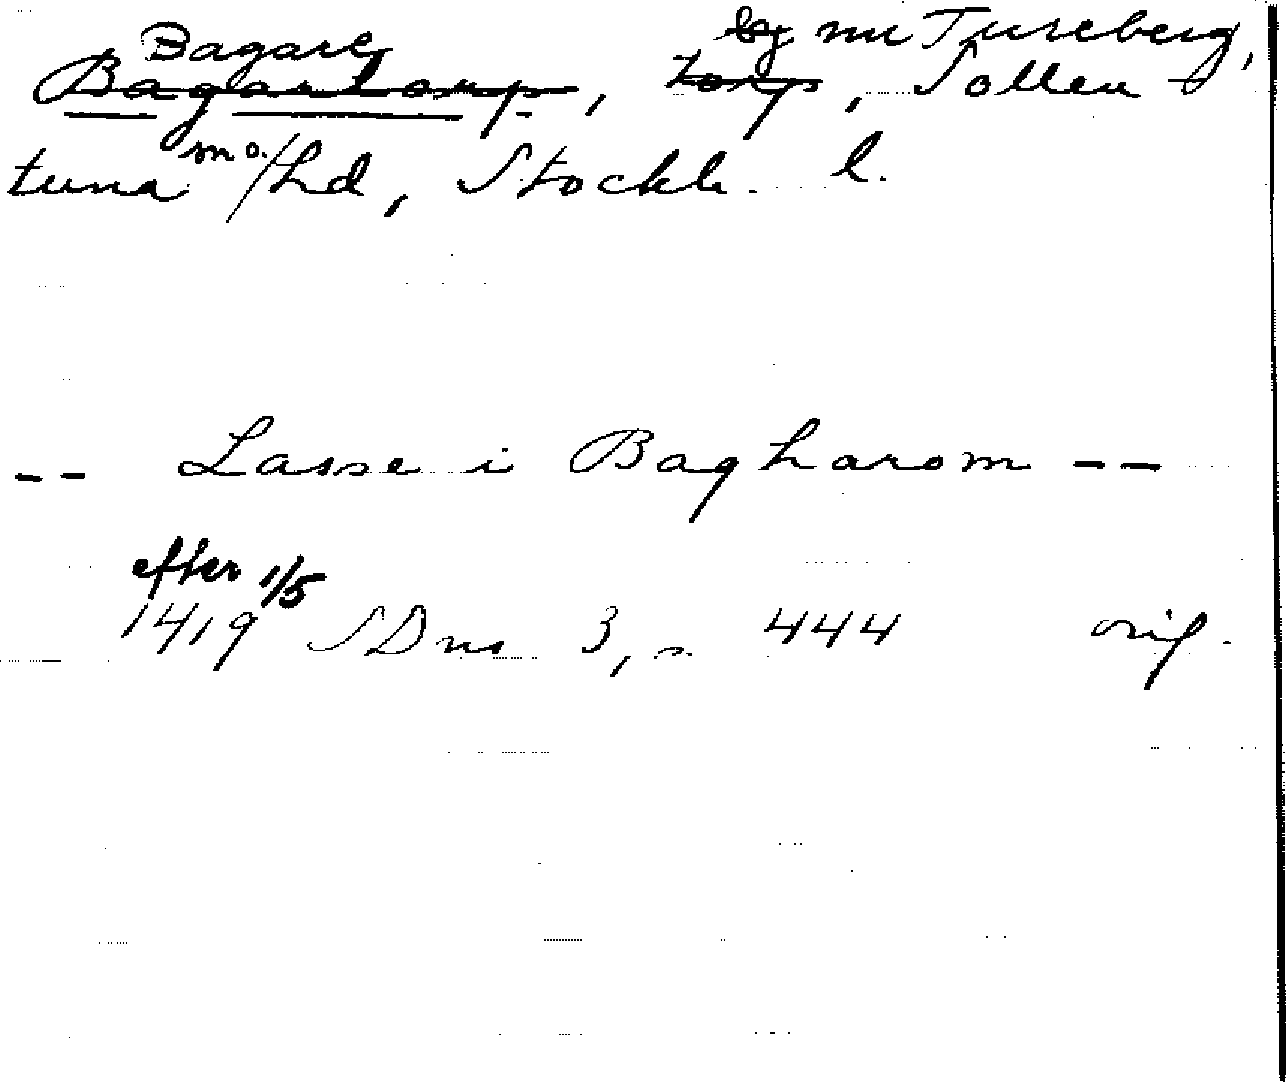 Bagare by nu Tureberg,
Bagartorp, torp, Sollen
tuna mo./hd, Stockh. l.
-- Lasse i Bagharom --
efter 1/5
1419 SDns 3, s 444 orig.